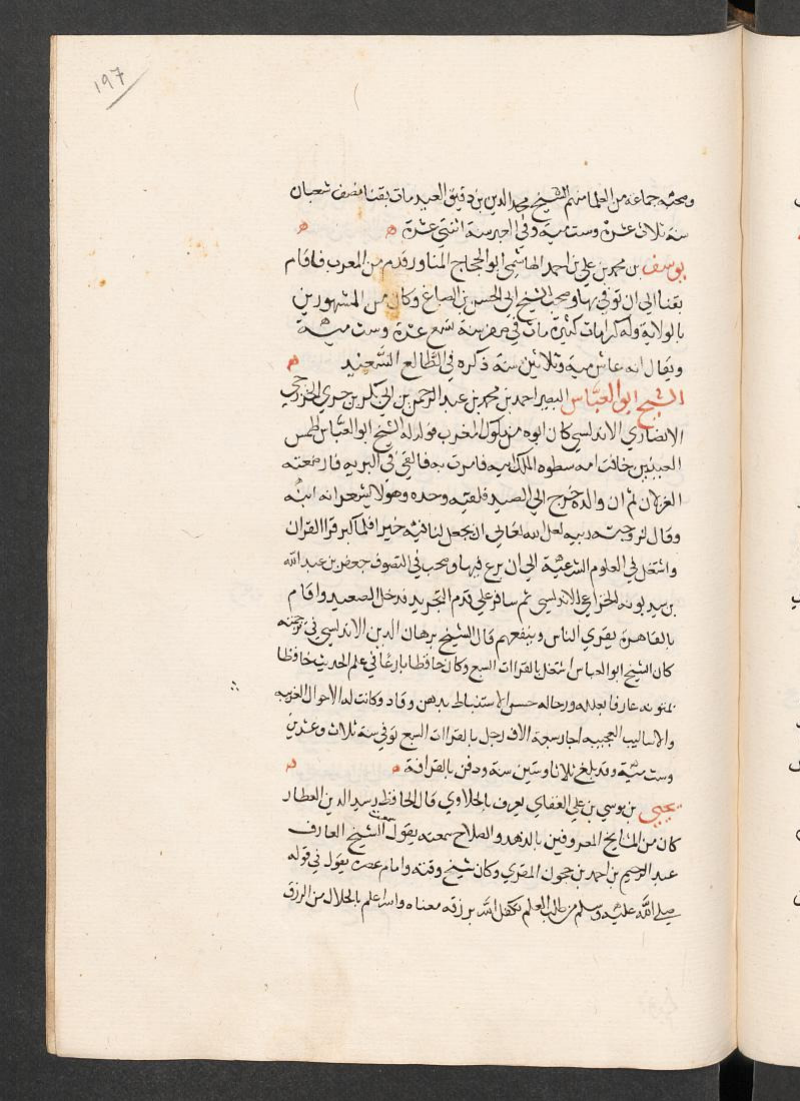 ١٩٧
وصحبه جماعة من العلما منهم الشيخ مجد الدين بن دقيق العيد مات بقنا نصف شعبان
سنة ثلاث عشرة وست ميه وفي اخر سنة اثنتي عشرة
يوسف بن محمد بن علي بن احمد الهاشمي ابو الحجاج المغاور قدم من المغرب فاقام
بقنا الى ان توفي بها وصحب الشيخ ابي الحسن بن الصباغ وكان من المشهورين
بالولاية وله كرامات كثيرة مات في صفر سنة تسع عشرة وست ميئة
ويقال انه عاش ميه وثلاثين سنة ذكره في الطالع السعيد
الشيخ ابو العباس البصير احمد بن محمد بن عبد الرحمن بن ابي بكر بن جزي الخزرجي
الانصاري الاندلسي كان ابوه من ملوك المغرب فولد له الشيخ ابو العباس اطمس
العينين خافت امه سطوه الملك ابيه فامرت به فالقي في البريه فارضعته
الغزلان ثم ان والده خرج الى الصيد فلقيه وحده وهو لا يشعر انه ابنه
وقال لزوجته ربيه لعل الله تعالى ان يجعل لنا فيه خيرا فلما كبر قرا القران
واشتغل في العلوم الشرعية الى ان برع فيها وصحب في التصوف جعفر بن عبد الله
بن سيد بونه الخزاعي الاندلسي ثم سافر على قدم التجريد فدخل الصعيد واقام
بالقاهرة يقري الناس وينفعهم قال الشيخ برهان الدين الاندلسي في ترجمته
كان الشيخ ابو العباس اشتغل بالقراات السبع وكان حافظا بارعا في علم الحديث حافظا
بمتونه عارفا بعلله ورجاله حسن الاستنباط بذهن وقاد وكانت له الاحوال الغريبه
والاساليب العجيبه اجاز سبعة الاف رجل بالقراات السبع توفي سنة ثلاث وعشرين
وست ميئة وقد بلغ ثلاثا وستين سنة ودفن بالقرافة
يحيى بن موسي بن علي القنائي يعرف بالحلاوي قال الحافظ رشيد الدين العطار
كان من المشايخ المعروفين بالزهد والصلاح سمعته يقول سمعت الشيخ العارف
عبد الرحيم بن احمد بن حجون المقري وكان شيخ وقته وامام عصره يقول في قوله
صلى الله عليه وسلم من طلب العلم تكفل الله برزقه معناه والله اعلم بالحلال من الرزق